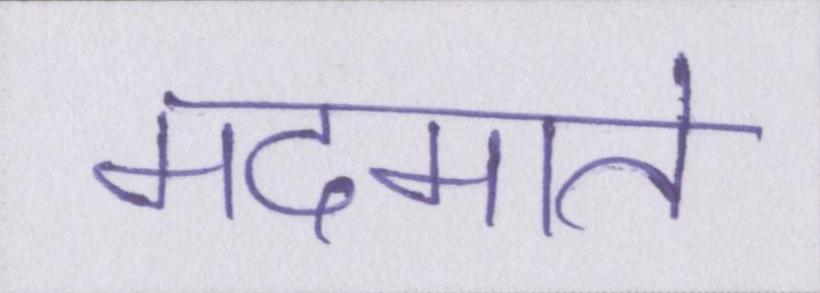 मदमाते